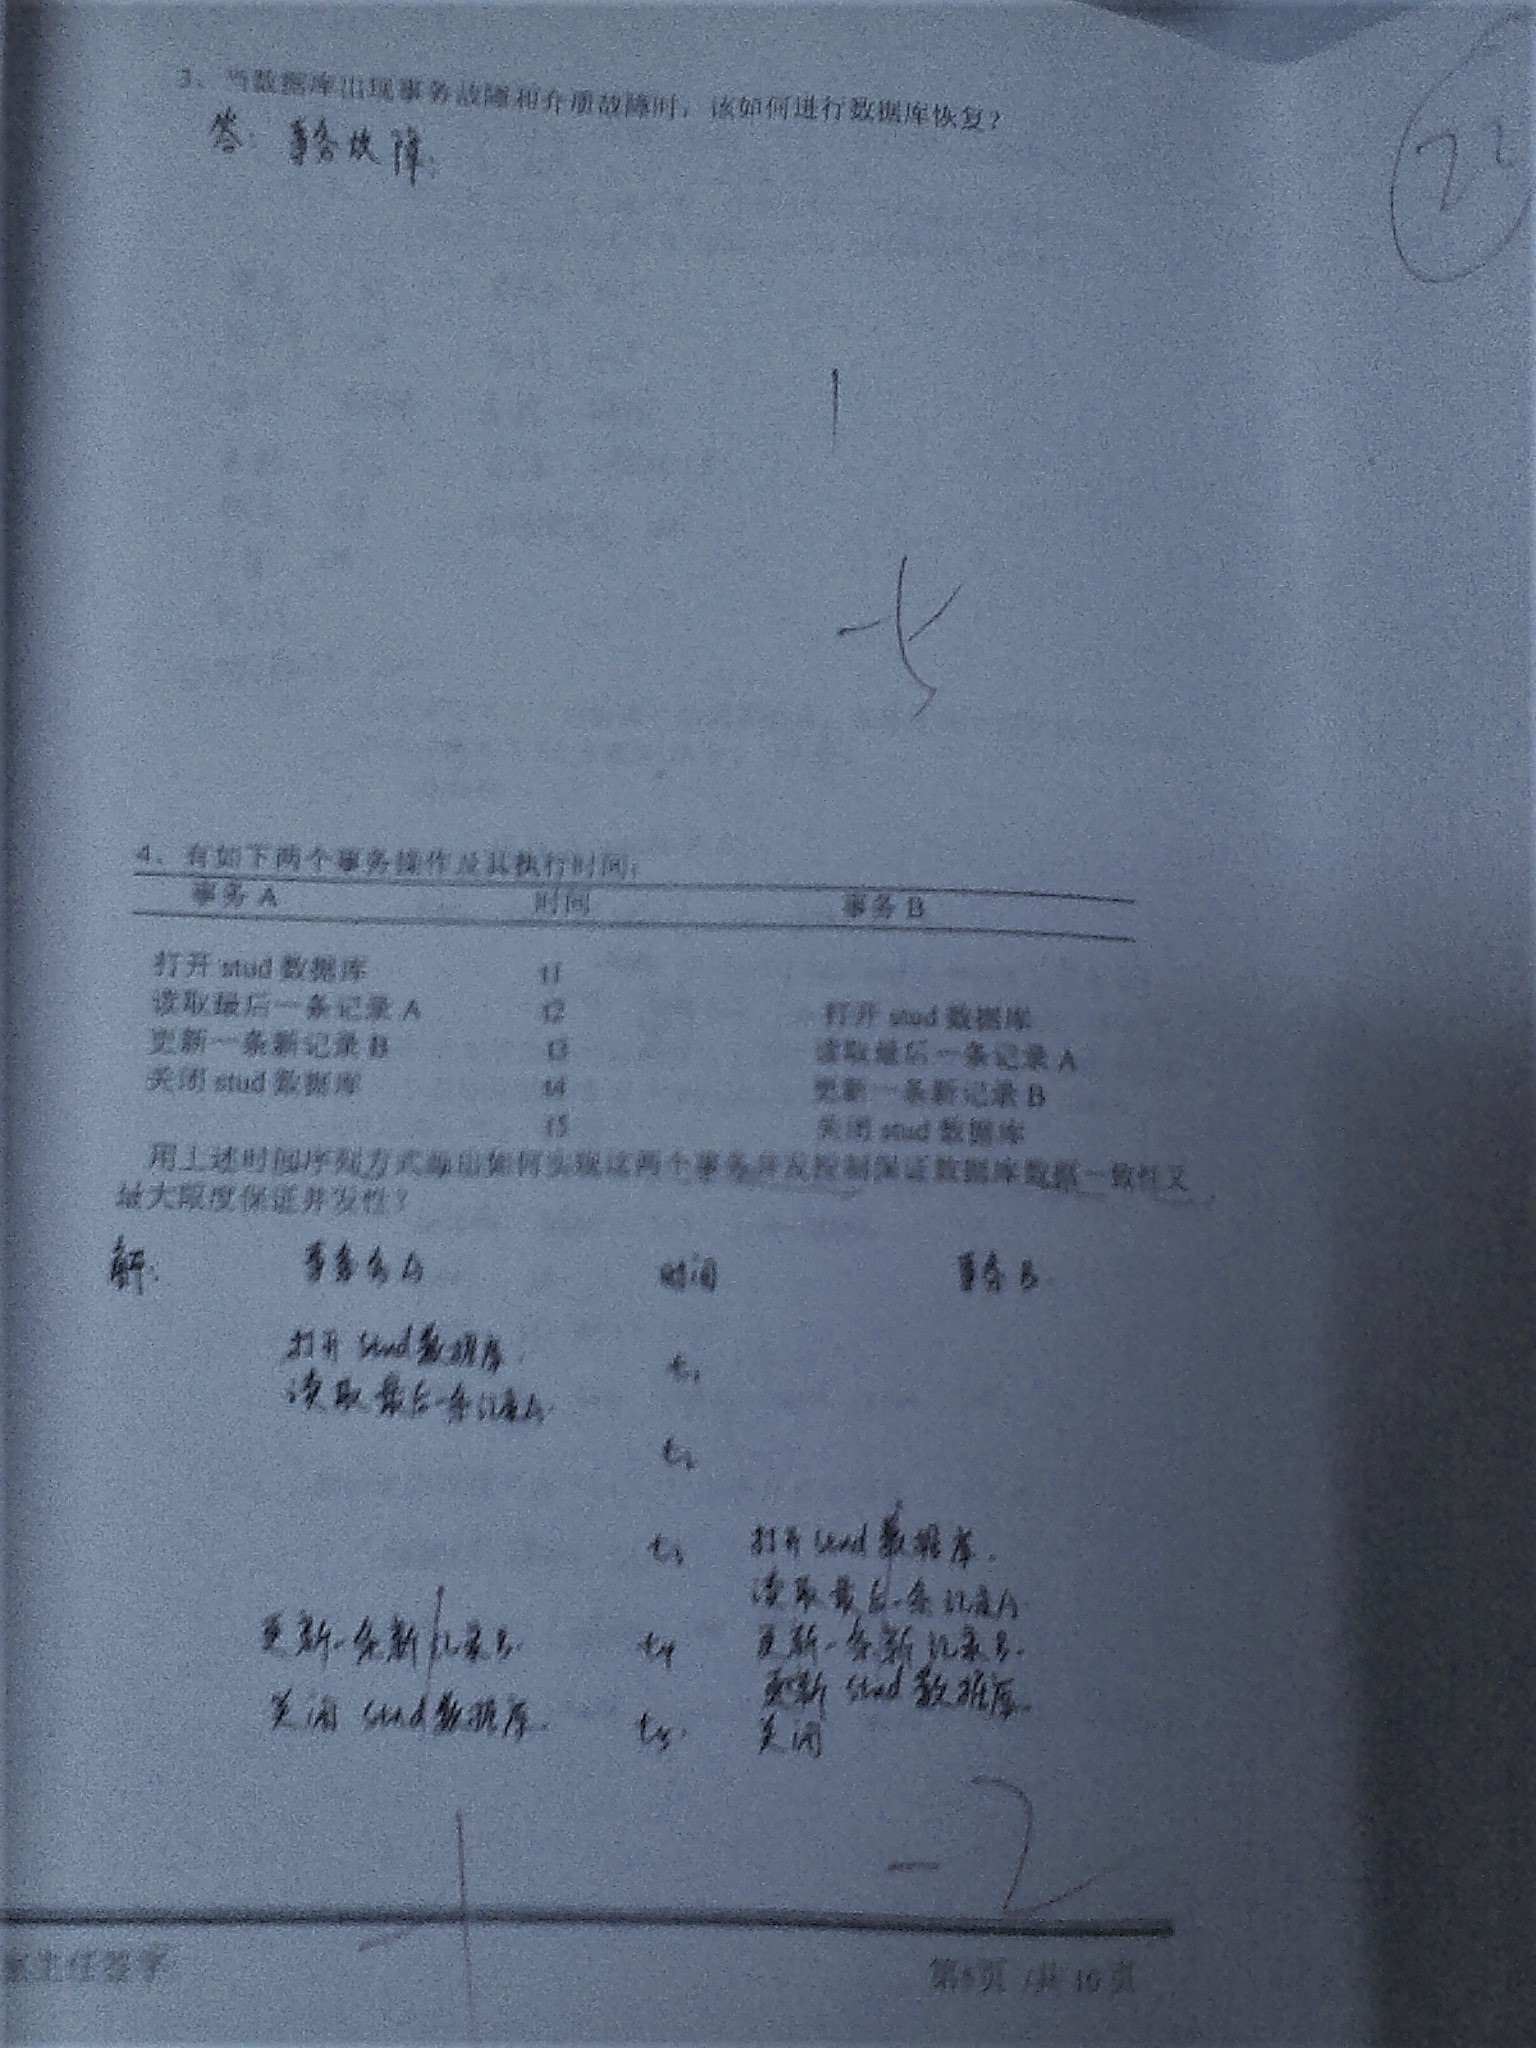 3、当数据库出现事务故障和介质故障时，该如何进行数据库恢复？
答：事务故障：
4、有如下两个事务操作及其执行时间：
事务 A 时间 事务 B
打开 stud 数据库 t1
读取最后一条记录 A t2 打开 stud 数据库
更新一条新记录 B t3 读取最后一条记录 A
关闭 stud 数据库 t4 更新一条新记录 B
t5 关闭 stud 数据库
用上述时间序列方式 如何实现这两个事务并发控制保证数据库数据一致性又
最大限度保证并发性？
解： 事务 A 时间 事务 B
打开 stud 数据库. t1
读取最后一条记录A.
t2
t3 打开 stud 数据库.
读取最后一条记录A
更新一条新记录B. t4 更新一条新记录B.
更新 stud 数据库.
关闭 stud 数据库. t5. 关闭
-2
主任签字 第 页 /共 10 页